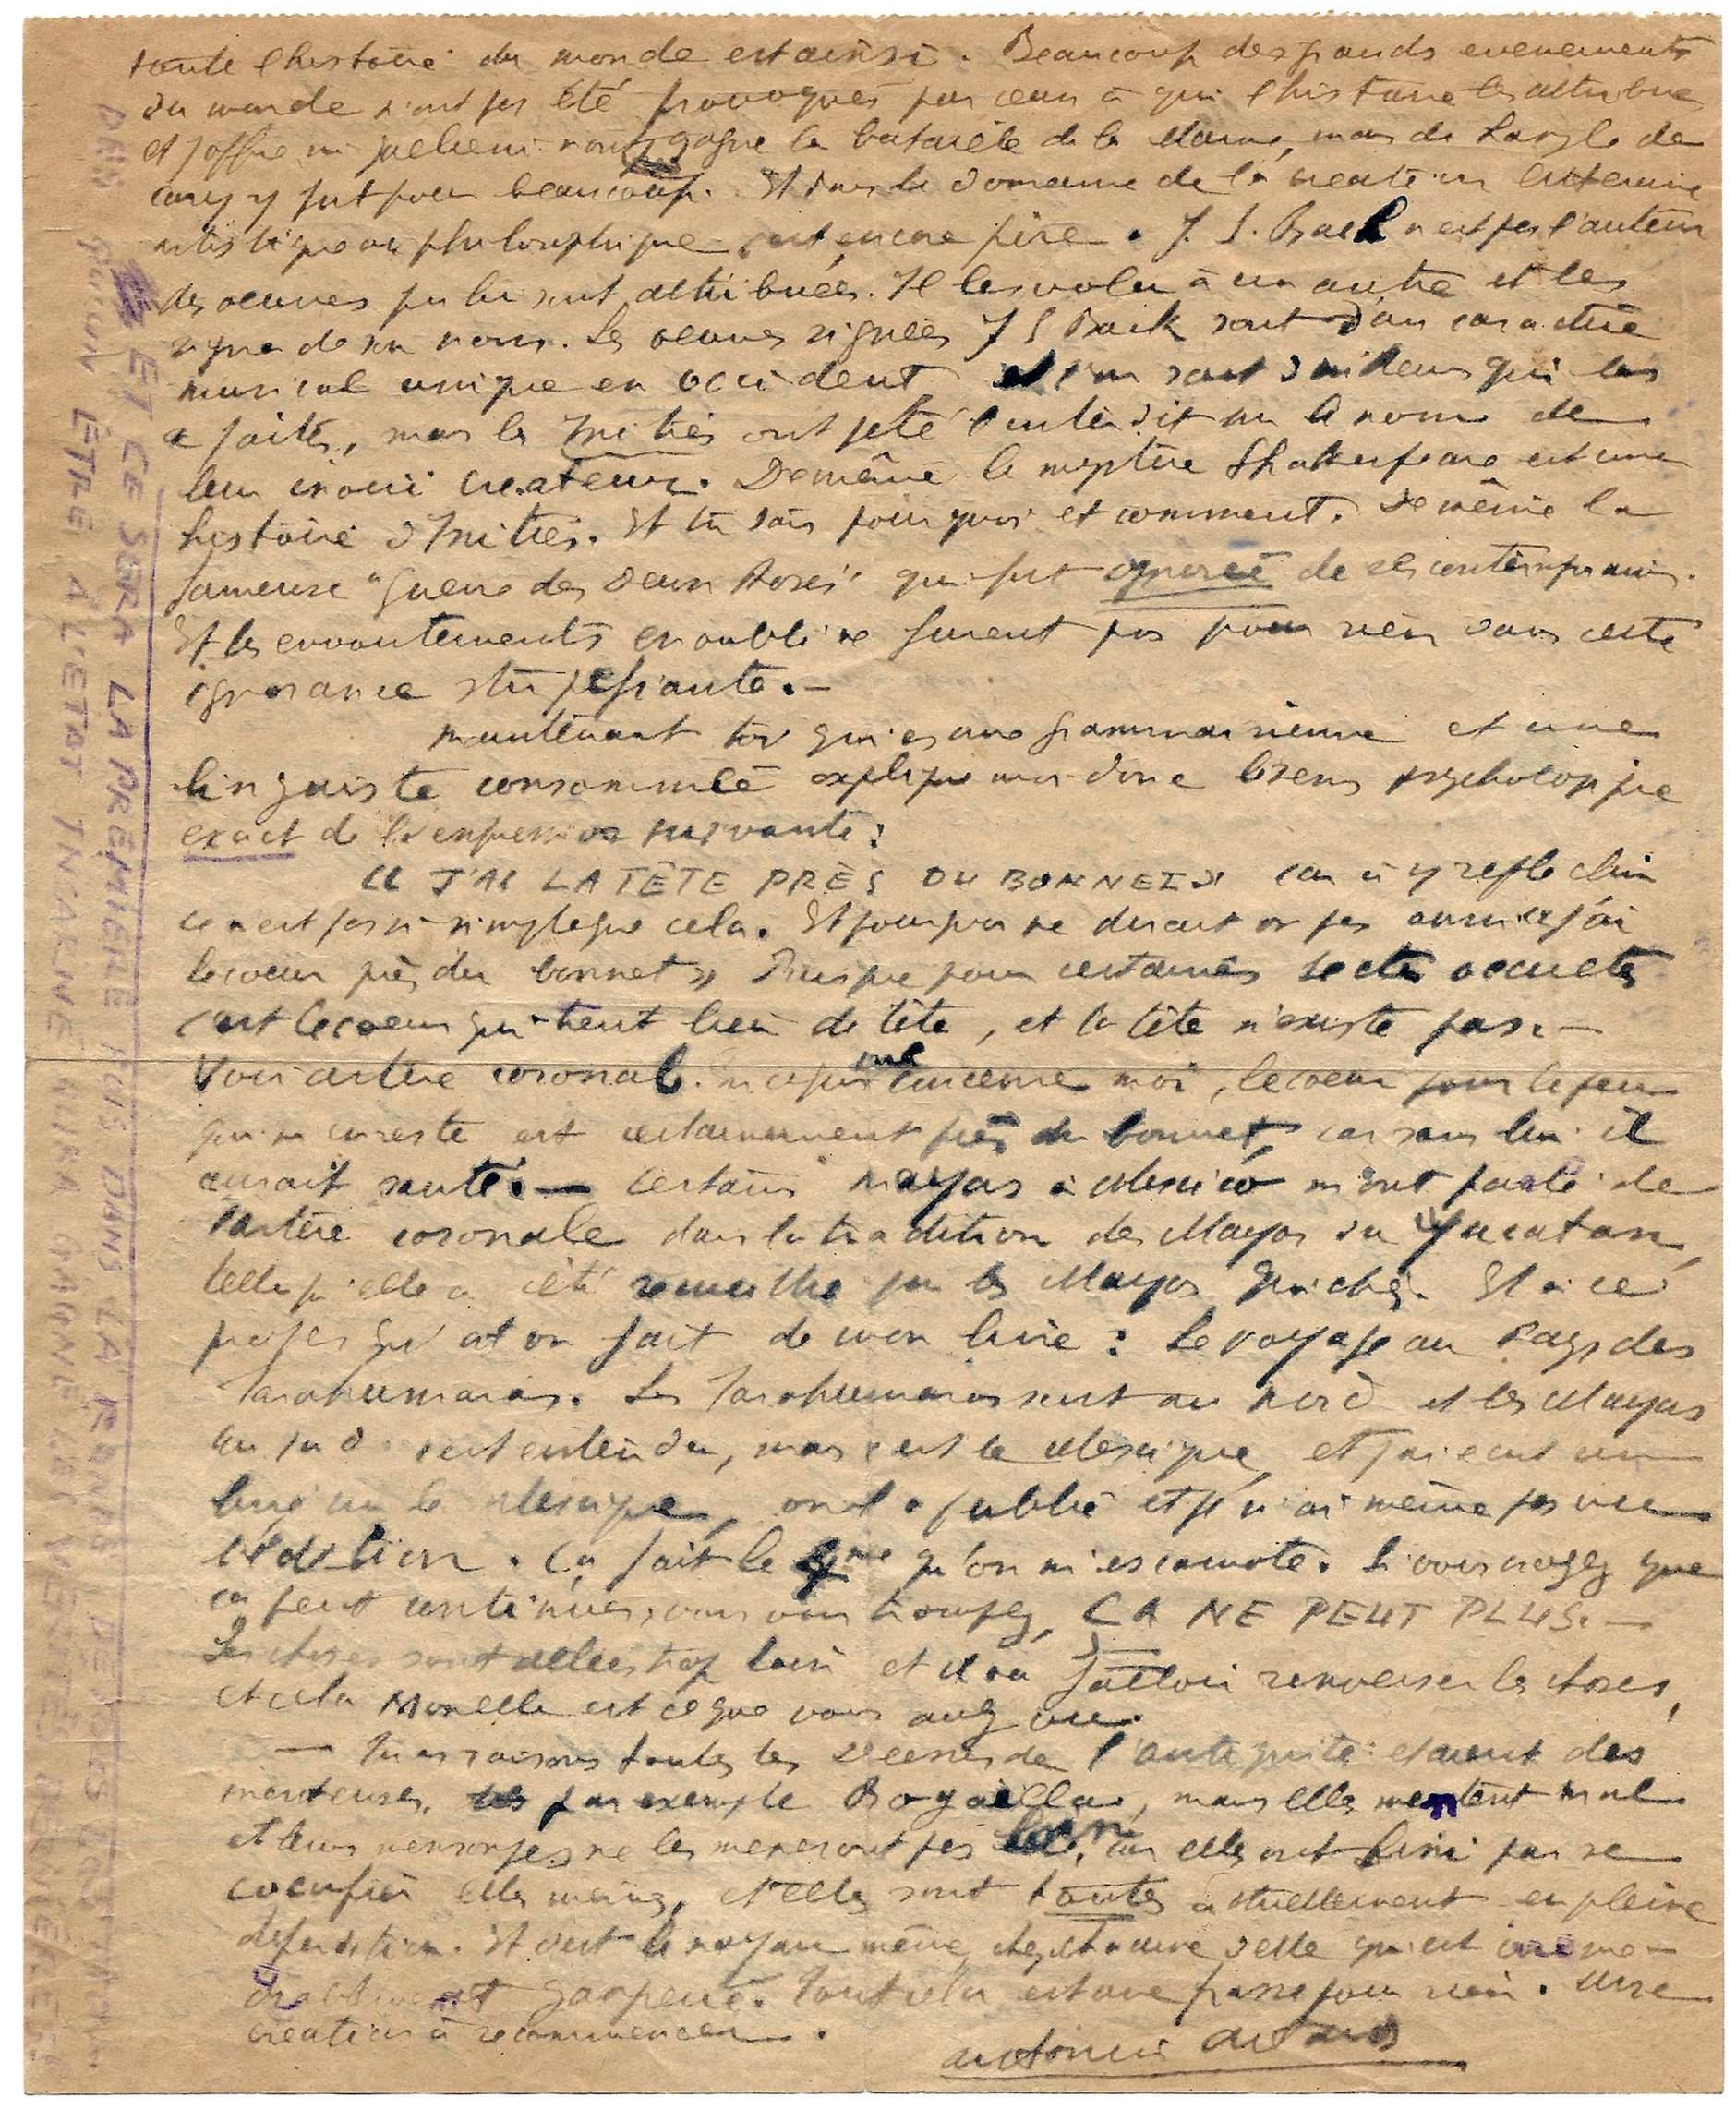 toute l'histoire du monde est ainsi. Beaucoup des grands evenements
du monde n'ont pas été provoqués par ceux à qui l'histoire les attribue
et Joffre ni Gallieni n'ont gagné la bataille de la Marne, mais de Langle de
Cary y fut pour beaucoup. Et dans le domaine de la creation litteraire
artistique ou philosophique, c'est encore pire. J. S. Bach n'est pas l'auteur
des oeuvres qui lui sont attribuées. Il les vola à un autre et les
signa de son nom. Les oeuvres signées J S Bach sont d'un caractère
musical unique en occident et l'on sait d'ailleurs qui les
a faites, mais les Initiés ont jeté l'interdit sur le nom de
leur inouï createur. De même le mystère Shakespeare est une
histoire d'Initiés. Et tu sais pourquoi et comment. De même la
fameuse "Guerre des Deux Roses" qui fut ignorée de ses contemporains.
Et les envoutements en oubli ne furent pas pour rien dans cette
ignorance stupefiante.—
maintenant toi qui es une grammairienne et une
linguiste consommée explique moi donc le sens psychologique
exact de l'expression suivante:
« J'AI LA TÊTE PRÈS DU BONNET » car à y reflechir
ce n'est pas si simple que cela. Et pourquoi ne dirait on pas aussi « j'ai
le coeur près du bonnet » Puisque pour certaines sectes occultes
c'est le coeur qui tient lieu de tête, et la tête n'existe pas.—
Voir artère coronale. en ce qui me concerne moi, le coeur pour le peu
qui m'en reste est certainement près du bonnet, car sans lui il
aurait sauté.— Certains mayas à Mexico m'ont parlé de
l'artère coronale dans la tradition des Mayas du Yucatan,
telle qu'elle a été recueillie par les Mayas Quichés. Et à ce
propos qu'a t on fait de mon livre: Le voyage au Pays des
Tarahumaras. Les Tarahumaras sont au nord et les Mayas
au sud c'est entendu, mais c'est le Mexique, et j'ai ecrit un
livre sur le Mexique, on l'a publié et je n'ai même pas vu
l'édition. Ça fait le 4me qu'on m'escamote. Si vous croyez que
ça peut continuer, vous vous trompez, ÇA NE PEUT PLUS.—
Les choses sont allées trop loin et il va falloir renverser les choses,
et cela Monelle est ce que vous avez vu.
— Tu as raison toutes les Deesses de l'antiquité etaient des
menteuses, par exemple, mais elles mentent mal
et leurs mensonges ne les meneront pas loin, car elles ont fini par se
cocufier elles mêmes, et elles sont toutes actuellement en pleine
deperdition. Et c'est le noyau même chez chacune d'elle qui est irreme-
diablement gangrené. Tout cela est une passe pour rien. Une
creation à recommencer.
Antonin Artaud
ET CE SERA LA PREMIÈRE FOIS DANS LA RONDE DES
AUCUN ÊTRE A L'ETAT INCARNÉ